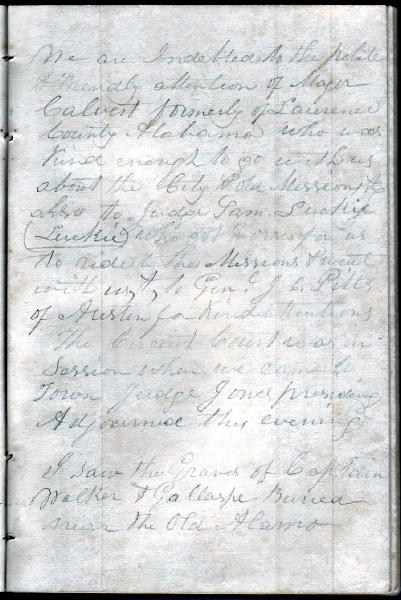 We are Indebted to the polite
& friendly attention of Major
Calvert formerly of Lawrence
County Alabama who was
kind enough to go with us
about the City & old Missions &c
also to Judge Sam. Luckie
(Luckie) who got horses for us
to ride to the Missions & went
with us, & to Genl J. C. Pitts
of Austin for kind attentions
The Circuit Court was in
Session when we came to
Town Judge Jones presiding
Adjourned this evening
I saw the Graves of Captain
Walker & Gallaspe Buried
near the Old Alamo